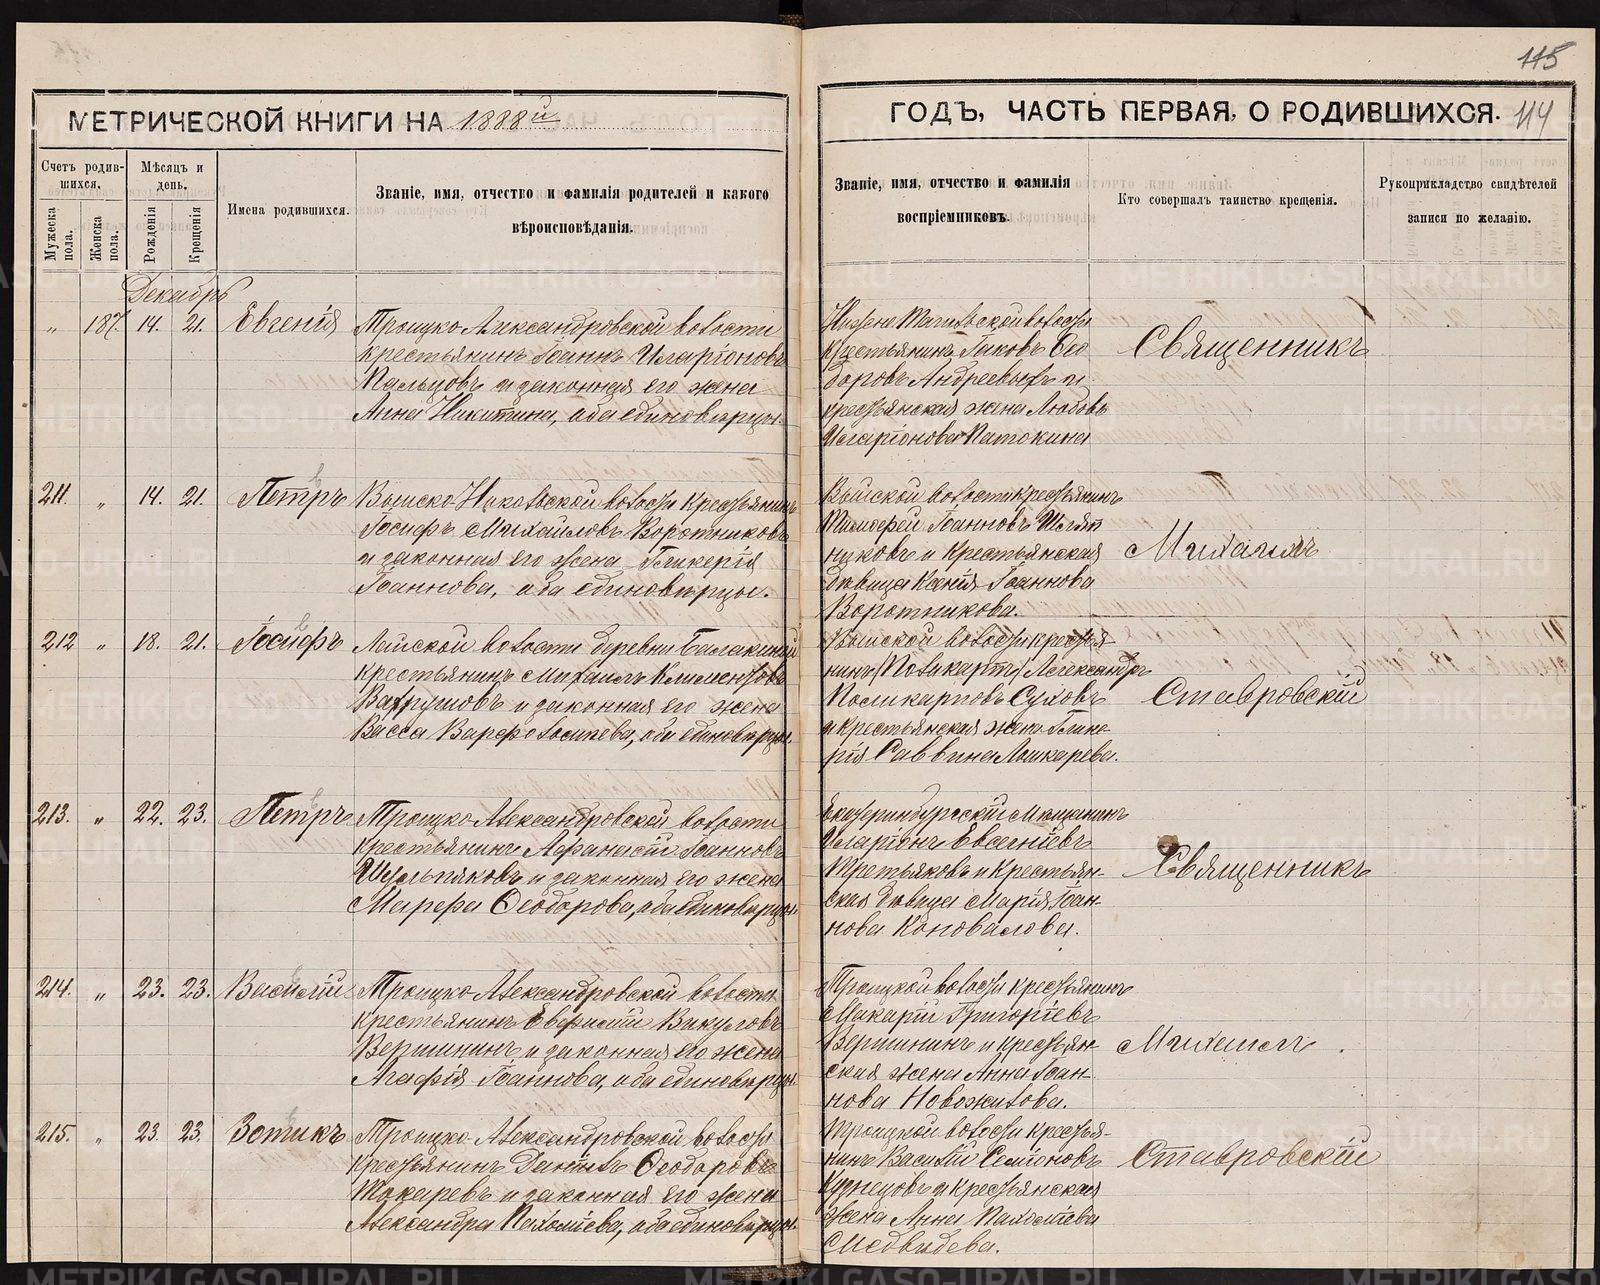 115
МЕТРИЧЕСКОЙ КНИГИ НА 1888й
ГОДЪ, ЧАСТЬ ПЕРВАЯ, О РОДИВШИХСЯ.
114
Счетъ родив-
шихся.
Мужеска пола.
Женска пола.
Мѣсяцъ и
день.
Рожденія
Крещенія
Имена родившихся.
Званіе, имя, отчество и фамилія родителей и какого
вѣроисповѣданія.
Званіе, имя, отчество и фамилія
воспріемниковъ.
Кто совершалъ таинство крещенія.
Рукоприкладство свидѣтелей
записи по желанію.
Декабрь
„ 187. 14. 21. Евгенія
Троицко-Александровской волости
крестьянинъ Іоаннъ Иларіоновъ
Пальцовъ и законная его жена
Анна Никитина, оба единоверцы.
Нижне Тагильской волости
крестьянинъ Іаковъ Ѳео
доровъ Андреевыхъ и
крестьянская жена Любовь
Иларіонова Патокина
Священникъ
211. „ 14. 21. Петръ
Выйско-Николской волости крестьянинъ
Іосифъ Михайловъ Воротниковъ
и законная его жена Гликерія
Іоаннова, оба единоверцы.
Выйской волости крестьянинъ
Тимофей Іоанновъ
и Крестьянская
девица Ксенія Іоаннова
Воротникова.
Михаилъ
212 „ 18. 21. Іосифъ
Лайской волости деревни Балакиной
крестьянинъ Михаилъ Климентовъ
Вахрушовъ и законная его жена
Васса Варфоломеева, оба единоверцы.
Выйской волости крестья-
нинъ Александръ
Поликарповъ Суховъ
и крестьянская жена Глике-
рія Саввина Лошкарева.
Ставровскій
213. „ 22. 23. Петръ
Троицко-Александровской волости
крестьянинъ Афанасій Іоанновъ
Шульпяковъ и законная его жена
Марѳа Ѳеодорова, оба единоверцы.
Екатеринбургскій мѣщанинъ
Иларіонъ Евгеніевъ
Третьяковъ и Крестьян-
ская девица Марія Іоан-
нова Коновалова.
Священникъ
214. „ 23. 23. Василій
Троицко-Александровской волости
крестьянинъ Евфимій Викуловъ
Вершининъ и законная его жена
Агафія Іоаннова, оба единоверцы.
Троицкой волости крестьянинъ
Макарій Григоріевъ
Вершининъ и крестьян-
ская жена Анна Іоан-
нова Новожилова.
Михаилъ
215. „ 23. 23. Зотикъ
Троицко-Александровской волости
крестьянинъ Ѳеодоровъ
Токаревъ и законная его жена
Александра Пахоміева, оба единоверцы.
Троицкой волости крестья-
нинъ Василій Семіоновъ
Кузнецовъ и крестьянская
жена Анна Пахоміева
Медвѣдева.
Ставровскій
METRIKI.GASO-URAL.RU